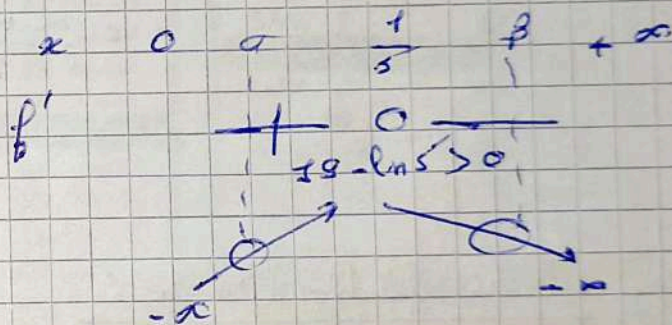 x 0 α 1/5 β + ∞
f' + 0 −
19 - ln5 > 0
-∞ -∞